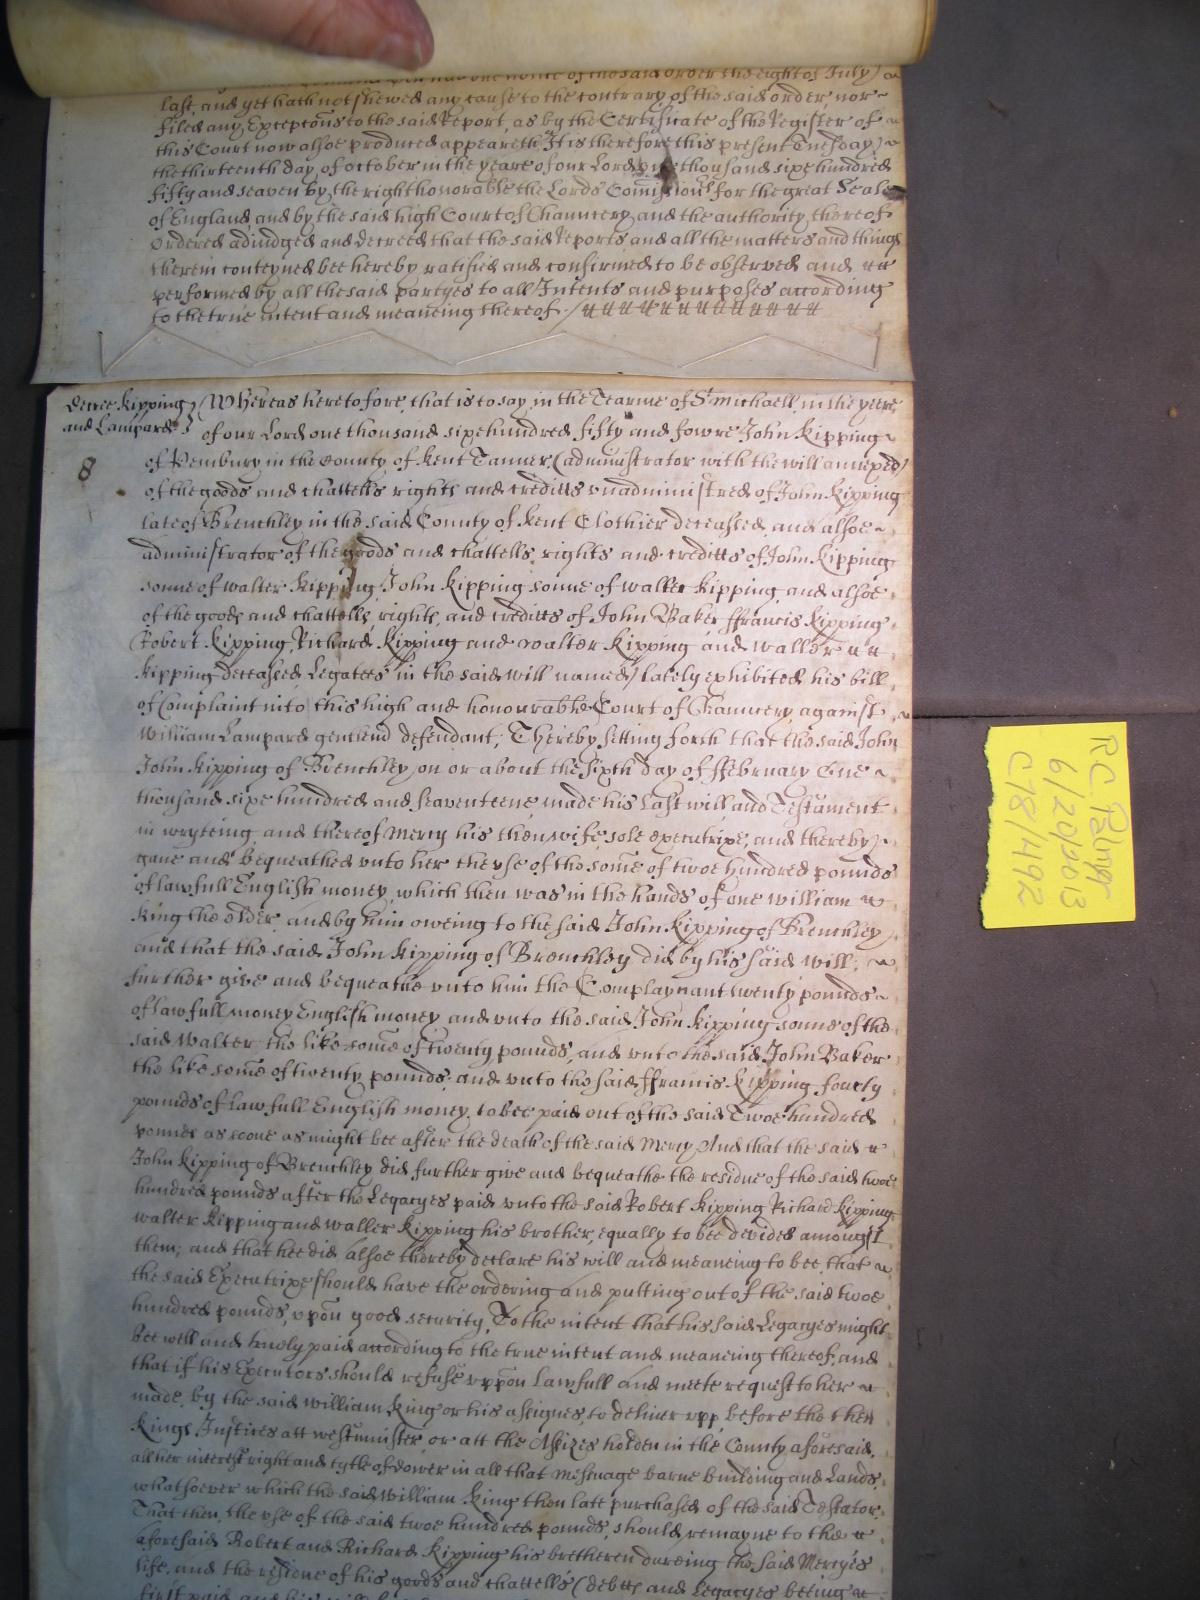 of the said order the eight of July
last, and yet hath not shewed any cause to the contrary of the said order nor
filed any Excepcons to the said Report, as by the Certificate of the Register of
this Court now alsoe produced appeareth It is therefore this present Tuesday
the thirteenth day of october in the yeare of our Lord one thousand sixe hundred
fifty and seaven by the right honorable the Lords Comissioñs for the great Seale
of England and by the said high Court of Chauncery and the authority thereof
Ordered adiudged and decreed that the said Reports and all the matters and things
therein conteyned bee hereby ratified and confirmed to be observed and
performed by all the said partyes to all Intents and purposes according
to the true intent and meaneing thereof
decree Kipping and Lampard
8
Whereas heretofore, that is to say, in the Tearme of St Michaell, in the yeere
of our Lord one thousand sixe hundred fifty and fowre John Kipping
of Pembury in the County of Kent Tanner (administrator with the will annexed)
of the goods and chattells rights and creditts vnadministred of John Kipping
late of Brenchley in the said County of Kent Clothier deceased, and alsoe
administrator of the goods and chattells, rights and creditts of John Kipping
sonne of walter Kipping, John Kipping sonne of walter Kipping, and alsoe
of the goods and chattells, rights, and creditts of John Baker ffrancis Kipping
Robert Kipping, Richard Kipping and walter Kipping and waller
Kipping deceased Legatees in the said will named) lately exhibited his bill
of Complaint into this high and honourable Court of Chauncery against
William Lampard gent defendant, Thereby setting forth that the said John
John Kipping of Brenchley on or about the sixth day of ffebruary One
thousand sixe hundred and seaventeene made his Last will and Testament
in wryteing, and thereof Mercy his then wife sole executrixe, and thereby
gave and bequeathed vnto her the vse of the some of twoe hundred pounds
of lawfull English money, which then was in the hands of one William
King the elder, and by him oweing to the said John Kipping of Brenchley
and that the said John Kipping of Brenchley did by his said will
further give and bequeathe vnto him the Complaynant twenty pounds
of lawfull money English money and vnto the said John Kipping sonne of the
said Walter the like some of twenty pounds, and vnto the said John Baker
the like some of twenty pounds, and vnto the said ffrancis Kipping fourty
pounds of lawfull English money, to bee paid out of the said Twoe hundred
pounds as soone as might bee after the death of the said Mercy And that the said
John Kipping of Brenchley did further give and bequeathe the residue of the said twoe
hundred pounds after the Legacyes paid vnto the said Robert Kipping Richard Kipping
walter Kipping and waller Kipping his brother, equally to bee devided amongst
them; and that hee did alsoe thereby declare his will and meaneing to bee, that
the said Executrixe should have the ordering and putting out of the said twoe
hundred pounds, vpon good security, To the intent that his said Legacyes might
bee well and truely paid according to the true intent and meaneing thereof, and
that if his Executors should refuse vppon Lawfull and meete request to her
made, by the said william King or his assignes, to deliver vpp before the then
Kings Justices att westminster or att the Assizes holden in the County aforesaid,
all her interest right and tytle of dower in all that Messuage barne building and Lands
whatsoever which the said William King then late purchased of the said Testator,
That then, the vse of the said twoe hundred pounds, should remayne to the
aforesaid Robert and Richard Kipping his bretheren dureing the said Mercyes
life, and the residue of his goods and chattells (debtts and Legacyes beeing
first paid and his
RC Palmer
6/20/2013
C78/1492